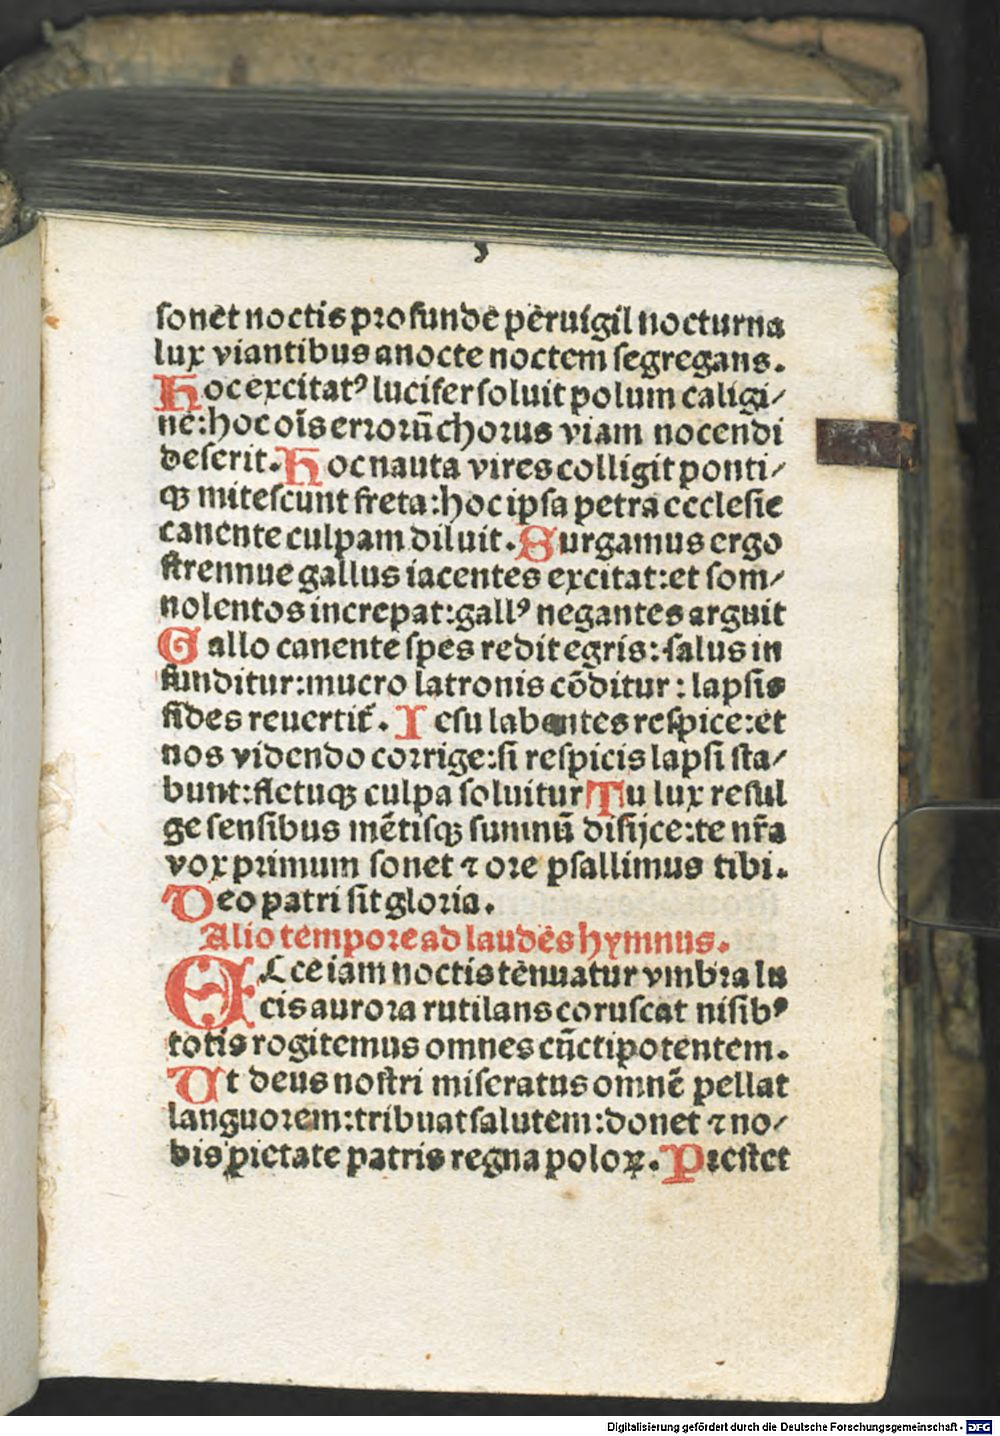 ſonet noctis profunde peruigil nocturna
lux viantibus a nocte noctem ſegregans.
Hoc excitatꝰ lucifer ſoluit polum caligi/
ne: hoc oīs erroꝛū choꝛus viam nocendi
deſerit. Hoc nauta vires colligit ponti/
qꝫ miteſcunt freta: hoc ipſa petra eccleſie
canente culpam diluit. Surgamus ergo
ſtrennue gallus iacentes excitat: et ſom/
nolentos increpat: gallꝰ negantes arguit
Gallo canente ſpes redit egris: ſalus in
funditur: mucro latronis cōditur: lapſis
fides reuertit᷑. Ieſu labentes reſpice: et
nos videndo coꝛrige: ſi reſpicis lapſi ſta/
bunt: fletuqꝫ culpa ſoluitur Tu lux reful
ge ſenſibus mētiſqꝫ ſumnū diſijce: te nr̄a
vox pꝛimum ſonet ⁊ oꝛe pſallimus tibi.
Deo patri ſit gloꝛia.
Alio tempoꝛe ad laudes hymnus.
ECce iam noctis tenuatur vmbꝛa lu
cis auroꝛa rutilans coruſcat niſibꝰ
totis rogitemus omnes cūctipotentem.
Ut deus noſtri miſeratus omnē pellat
languoꝛem: tribuat ſalutem: donet ⁊ no/
bis pietate patris regna poloꝝ. Pꝛeſtet
Digitalisierung gefördert durch die Deutsche Forschungsgemeinschaft - DFG